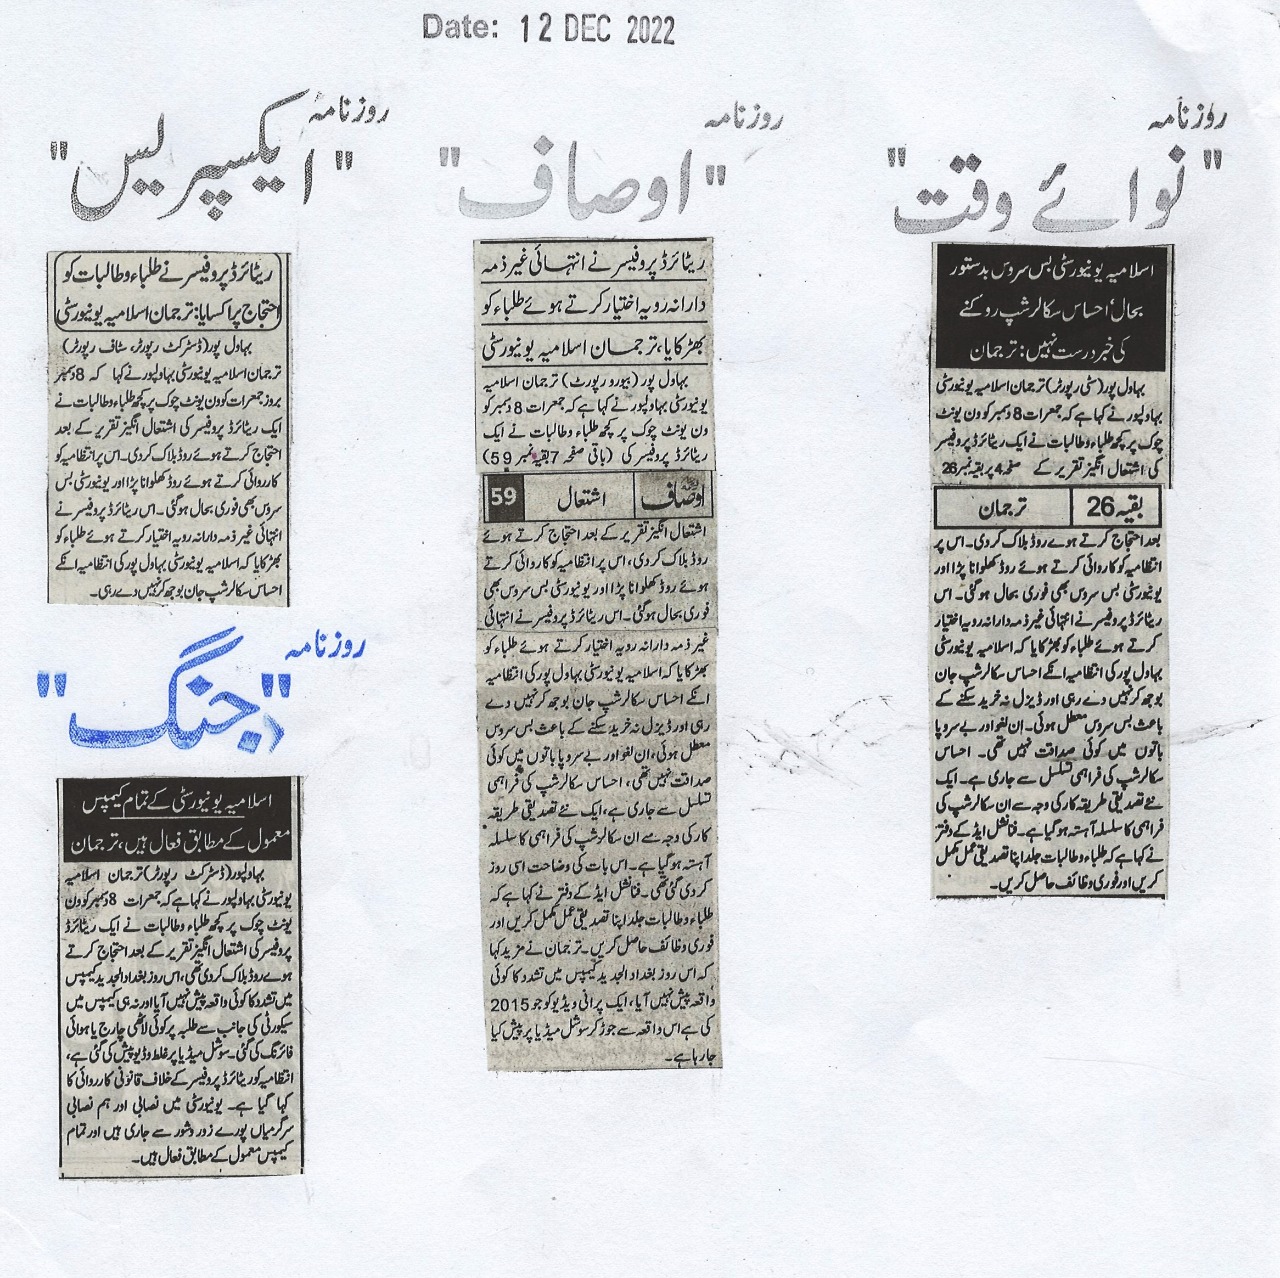 Date: 12 DEC 2022
روزنامہ
"نوائے وقت"
اسلامیہ یونیورسٹی بس سروس بدستور
بحال، احساس سکالرشپ روکنے
کی خبر درست نہیں: ترجمان
بہاول پور (سٹی رپورٹر) ترجمان اسلامیہ یونیورسٹی
بہاولپور نے کہا ہے کہ جمعرات 8 دسمبر کو ون یونٹ
چوک پر کچھ طلباء وطالبات نے ایک ریٹائرڈ پروفیسر
کی اشتعال انگیز تقریر کے صفحہ 4 پر بقیہ نمبر 26
بقیہ 26 ترجمان
بعد احتجاج کرتے ہوے روڈ بلاک کر دی۔ اس پر
انتظامیہ کو کاروائی کرتے ہوئے روڈ کھلوانا پڑا اور
یونیورسٹی بس سروس بھی فوری بحال ہوگئی۔ اس
ریٹائرڈ پروفیسر نے انتہائی غیر ذمہ دارانہ رویہ اختیار
کرتے ہوئے طلباء کو بھڑکایا کہ اسلامیہ یونیورسٹی
بہاول پور کی انتظامیہ انکے احساس سکالرشپ جان
بوجھ کر نہیں دے رہی اور ڈیزل نہ خرید سکنے کے
باعث بس سروس معطل ہوئی۔ ان لغو اور بے سروپا
باتوں میں کوئی صداقت نہیں تھی۔ احساس
سکالرشپ کی فراہمی تسلسل سے جاری ہے۔ ایک
نئے تصدیقی طریقہ کار کی وجہ سے ان سکالرشپ کی
فراہمی کا سلسلہ آہستہ ہو گیا ہے۔ فنانشل ایڈ کے دفتر
نے کہا ہے کہ طلباء وطالبات جلد اپنا تصدیقی عمل مکمل
کریں اور فوری وظائف حاصل کریں۔
روزنامہ
"اوصاف"
ریٹائرڈ پروفیسر نے انتہائی غیر ذمہ
دارانہ رویہ اختیار کرتے ہوئے طلباء کو
بھڑکایا، ترجمان اسلامیہ یونیورسٹی
بہاول پور (بیورو رپورٹ) ترجمان اسلامیہ
یونیورسٹی بہاولپور نے کہا ہے کہ جمعرات 8 دسمبر کو
ون یونٹ چوک پر کچھ طلباء وطالبات نے ایک
ریٹائرڈ پروفیسر کی (باقی صفحہ 7 بقیہ نمبر 59)
اوصاف اشتعال 59
اشتعال انگیز تقریر کے بعد احتجاج کرتے ہوئے
روڈ بلاک کر دی، اس پر انتظامیہ کو کاروائی کرتے
ہوئے روڈ کھلوانا پڑا اور یونیورسٹی بس سروس بھی
فوری بحال ہوگئی۔ اس ریٹائرڈ پروفیسر نے انتہائی
غیر ذمہ دارانہ رویہ اختیار کرتے ہوئے طلباء کو
بھڑکایا کہ اسلامیہ یونیورسٹی بہاول پور کی انتظامیہ
انکے احساس سکالرشپ جان بوجھ کر نہیں دے
رہی اور ڈیزل نہ خرید سکنے کے باعث بس سروس
معطل ہوئی، ان لغو اور بے سروپا باتوں میں کوئی
صداقت نہیں تھی، احساس سکالرشپ کی فراہمی
تسلسل سے جاری ہے، ایک نئے تصدیقی طریقہ
کار کی وجہ سے ان سکالرشپ کی فراہمی کا سلسلہ
آہستہ ہو گیا ہے۔ اس بات کی وضاحت اسی روز
کر دی گئی تھی۔ فنانشل ایڈ کے دفتر نے کہا ہے کہ
طلباء وطالبات جلد اپنا تصدیقی عمل مکمل کریں اور
فوری وظائف حاصل کریں۔ ترجمان نے مزید کہا
کہ اس روز بغداد الجدید کیمپس میں تشدد کا کوئی
واقعہ پیش نہیں آیا، ایک پرانی ویڈیو کو جو 2015
کی ہے اس واقعہ سے جوڑ کر سوشل میڈیا پر پیش کیا
جا رہا ہے۔
روزنامہ
"ایکسپریس"
ریٹائرڈ پروفیسر نے طلباء وطالبات کو
احتجاج پر اکسایا: ترجمان اسلامیہ یونیورسٹی
بہاول پور (ڈسٹرکٹ رپورٹر، سٹاف رپورٹر)
ترجمان اسلامیہ یونیورسٹی بہاولپور نے کہا کہ 8 دسمبر
بروز جمعرات کو ون یونٹ چوک پر کچھ طلباء وطالبات نے
ایک ریٹائرڈ پروفیسر کی اشتعال انگیز تقریر کے بعد
احتجاج کرتے ہوئے روڈ بلاک کر دی۔ اس پر انتظامیہ کو
کارروائی کرتے ہوئے روڈ کھلوانا پڑا اور یونیورسٹی بس
سروس بھی فوری بحال ہوگئی۔ اس ریٹائرڈ پروفیسر نے
انتہائی غیر ذمہ دارانہ رویہ اختیار کرتے ہوئے طلباء کو
بھڑکایا کہ اسلامیہ یونیورسٹی بہاول پور کی انتظامیہ انکے
احساس سکالرشپ جان بوجھ کر نہیں دے رہی۔
روزنامہ
"جنگ"
اسلامیہ یونیورسٹی کے تمام کیمپس
معمول کے مطابق فعال ہیں، ترجمان
بہاولپور (ڈسٹرکٹ رپورٹر) ترجمان اسلامیہ
یونیورسٹی بہاولپور نے کہا ہے کہ جمعرات 8 دسمبر کو ون
یونٹ چوک پر کچھ طلباء وطالبات نے ایک ریٹائرڈ
پروفیسر کی اشتعال انگیز تقریر کے بعد احتجاج کرتے
ہوے روڈ بلاک کر دی تھی، اس روز بغداد الجدید کیمپس
میں تشدد کا کوئی واقعہ پیش نہیں آیا اور نہ ہی کیمپس میں
سیکورٹی کی جانب سے طلبہ پر کوئی لاٹھی چارج یا ہوائی
فائرنگ کی گئی۔ سوشل میڈیا پر غلط وڈیو پیش کی گئی ہے،
انتظامیہ کو ریٹائرڈ پروفیسر کے خلاف قانونی کارروائی کا
کہا گیا ہے۔ یونیورسٹی میں نصابی اور ہم نصابی
سرگرمیاں پورے زور وشور سے جاری ہیں اور تمام
کیمپس معمول کے مطابق فعال ہیں۔